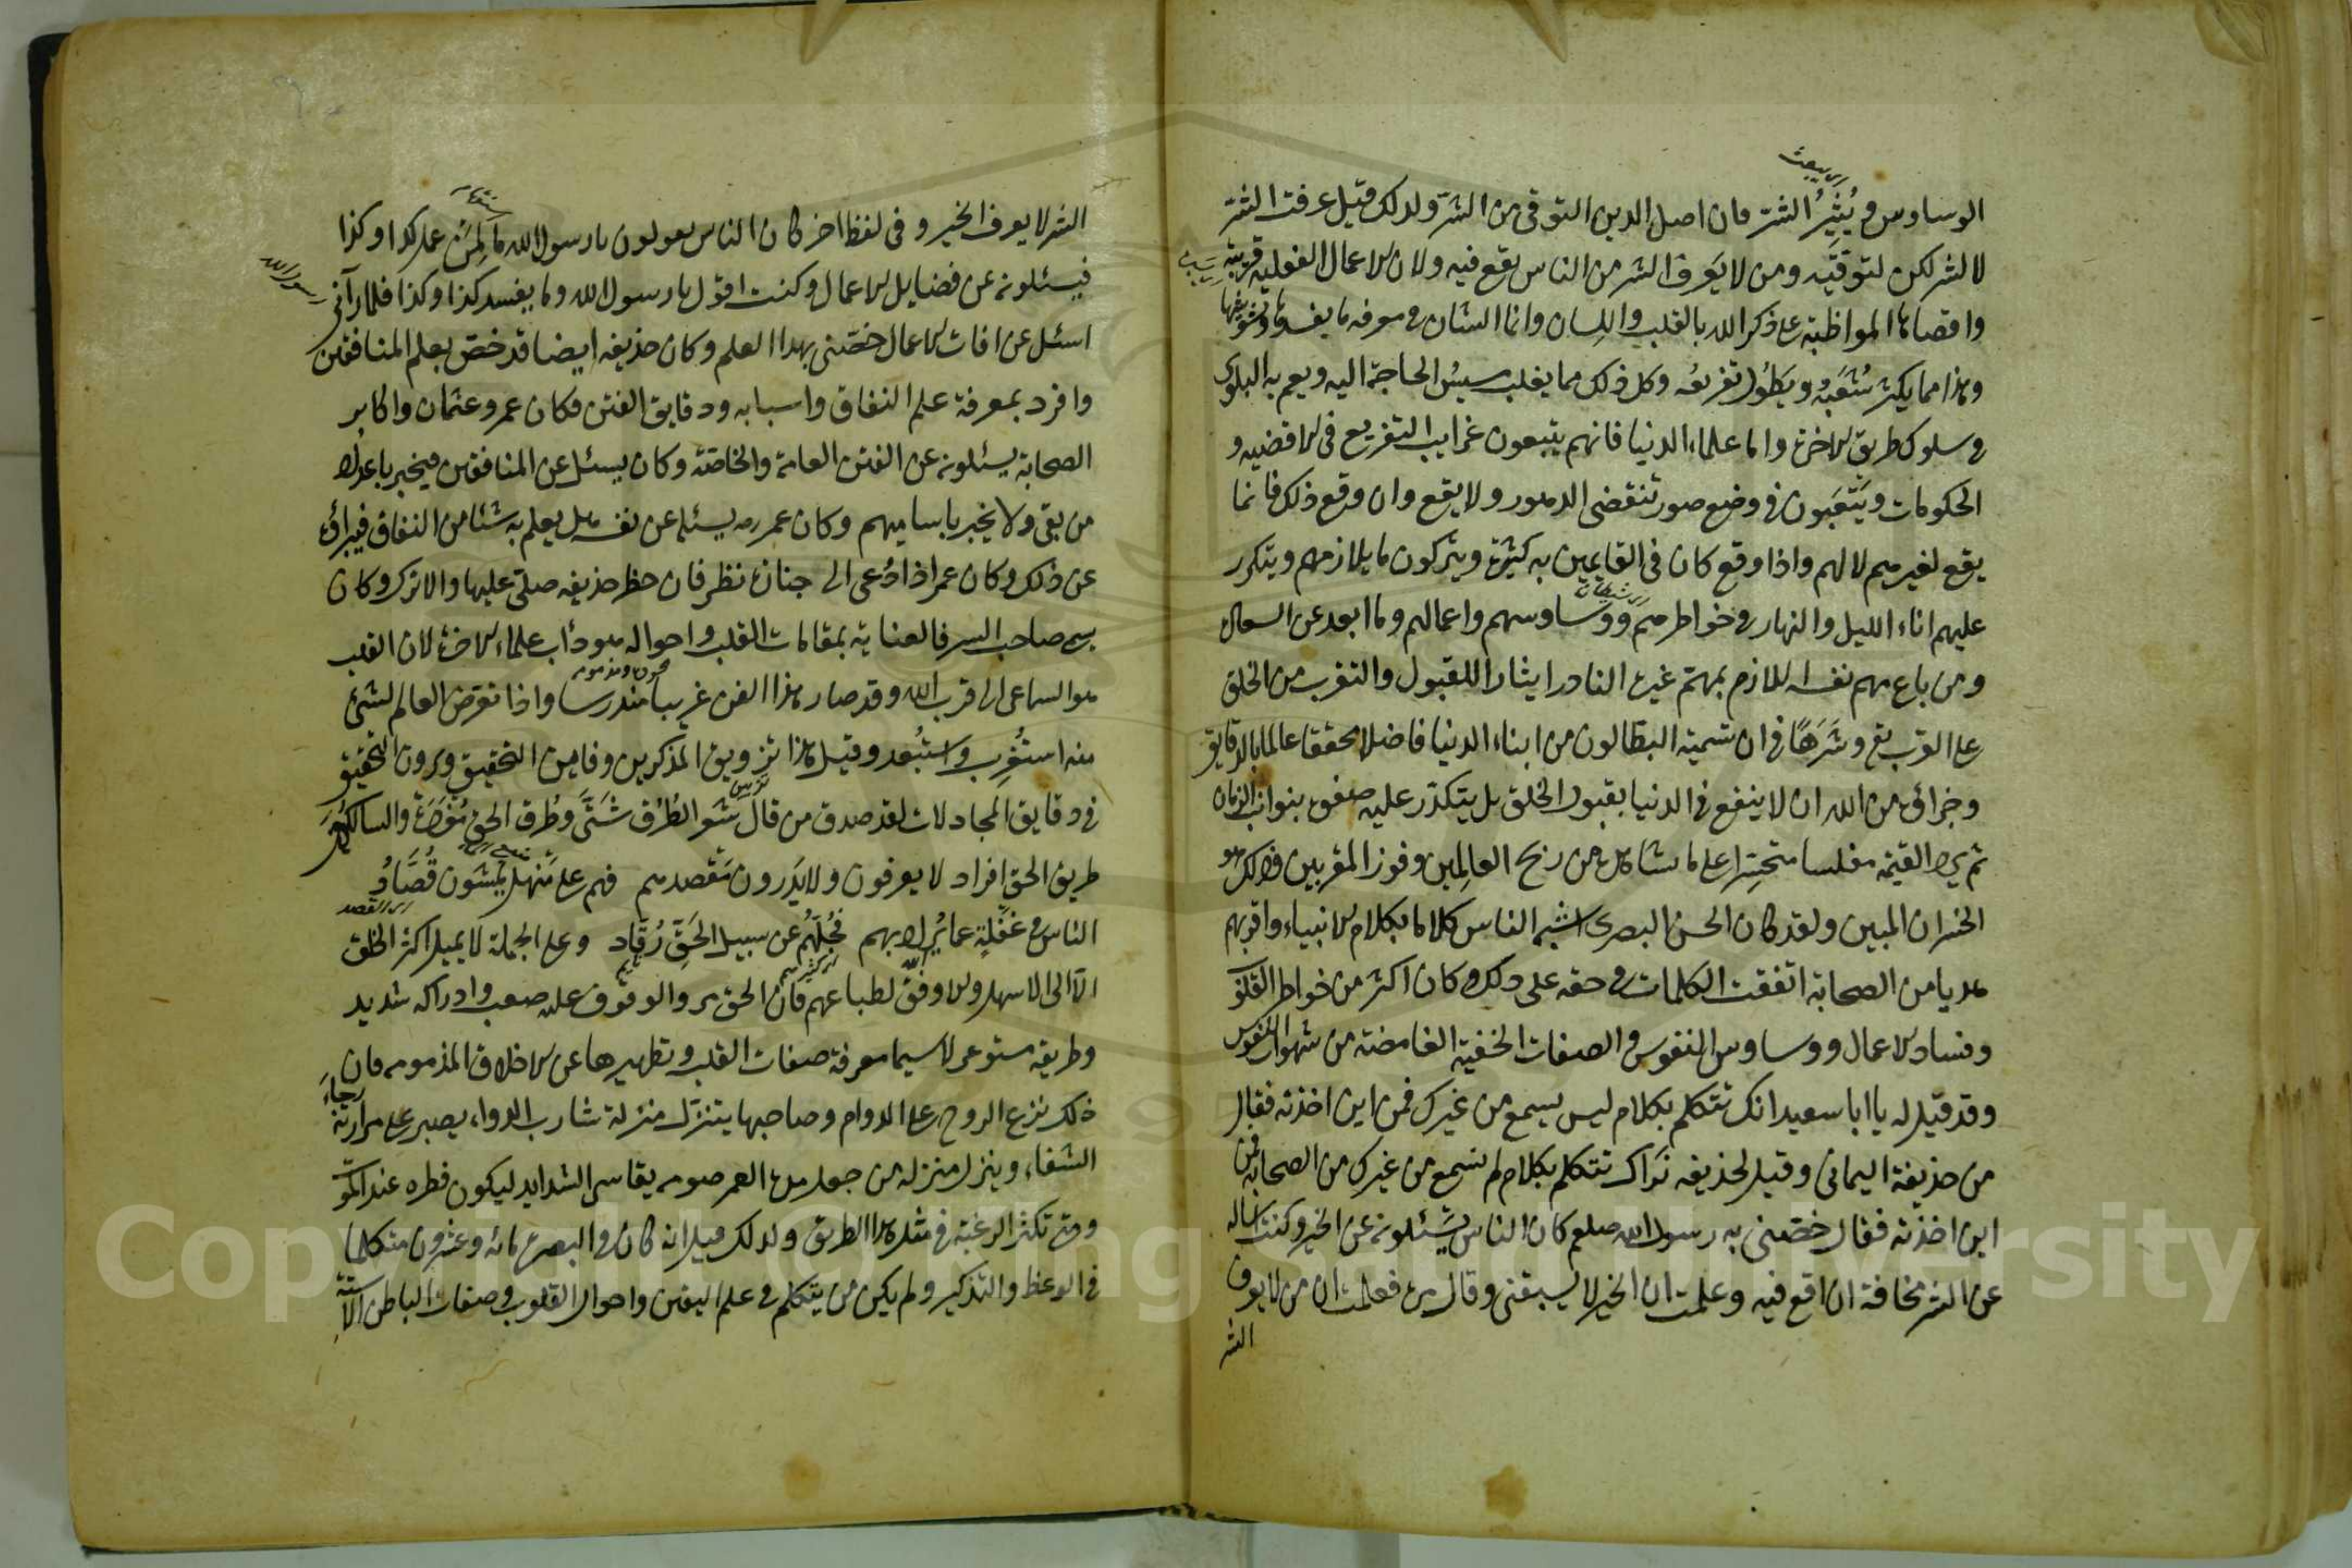 الوساوس ويُثِيرُ الشر فان اصل الدين التوقى من الشر ولذلك قيل عرفت الشر
لا للشر لكن لتوقيه ومن لا يعرف الشر من الناس يقع فيه ولان الاعمال الفعلية قريبة
واقصاها المواظبة على ذكر الله بالقلب واللسان وانما الشان فى معرفه ما يفسدها ويشوشها
وهذا مما يكثر شُعَبُهُ ويَطُول تفريعُه وكل ذلك مما يغلب مسيسُ الحاجة اليه ويعم به البلوى
فى سلوك طريق الاخرة واما علماء الدنيا فانهم يتبعون غرايب التفريع فى الاقضيه و
الحكومات ويَتْعَبون فى وضع صور تنقضى الدهور ولا يقع وان وقع ذلك فانما
يقع لغيرهم لا لهم واذا وقع كان فى القايمين به كثرة ويتركون ما يلازمهم ويتكرر
عليهم اناء الليل والنهار فى خواطرهم ووساوسهم واعمالهم وما ابعد عن السعادة
ومن باع مهم نفسه اللازم بمهتم غيره النادر ايثارا للقبول والتقرب من الخلق
على القرب مع وشَرَهًا فى ان تسميه البطالون من ابناء الدنيا فاضلا محققا عالما بالدقايق
وجزاؤه من الله ان لا ينفع فى الدنيا بقبول الخلق بل يتكدر عليه صفوه بنوايب الزمان
ثم يرد القيمة مفلسا متحسرا على ما شاهده من ربح العالمين وفوز المقربين فذلك هو
الخسران المبين ولقد كان الحسن البصرى اشبه الناس كلاما بكلام الانبياء واقربهم
هديا من الصحابة اتفقت الكلمات فى حقه على ذلك وكان اكثر من خواطر القلوب
وفساد الاعمال ووساوس النفوس والصفات الخفية الغامضة من شهوات النفوس
وقد قيل له يا ابا سعيد انك تتكلم بكلام ليس يسمع من غيرك فمن اين اخذته فقال
من حذيفة اليمانى وقيل لحذيفه نَراك تتكلم بكلام لم نسمع من غيرك من الصحابة فمن
اين اخذته فقال خصّنى به رسول الله صلعم كان الناس يَسْئلونه عن الخير وكنت اساله
عن الشر مخافة ان اقع فيه وعلمت ان الخير لا يسبقنى وقال مرة فعلمت ان من لا يعرف
الشر
الشر لا يعرف الخير وفى لفظ اخر كان الناس يقولون يا رسول الله ما لِمَن عمل كذا وكذا
فيسئلونه عن فضايل الاعمال وكنت اقول يا رسول الله وما يفسد كذا وكذا فلما رآنى
رسول الله
اسئل عن افات الاعمال خصّنى بهذا العلم وكان حذيفه ايضا قد خص بعلم المنافقين
وافرد بمعرفة علم النفاق واسبابه ودقايق الفتن فكان عمر وعثمان واكابر
الصحابة يسئلونه عن الفتن العامة والخاصة وكان يسئل عن المنافقين فيخبر باعداد
من بقى ولا يخبر باساميهم وكان عمر رضه يسئله عن نفسه هل يعلم به شئا من النفاق فيبرأه
عن ذلك وكان عمر اذا دُعى الى جنازة نظر فان حظر حذيفه صلى عليها والا ترك وكان
يسمى صاحب السر فالعناية بمقامات القلب واحواله هو دأب علماء الاخرة لان القلب
هو الساعى الى قرب الله وقد صار هذا الفن غريبا مندرسا واذا تعرض العالم لشئ
منه استُغرِب واستُبعد وقيل هذا تزويق المذكرين فاين التحقيق ويرون التحقيق
فى دقايق المجادلات لقد صدق من قال شعر الطُرُق شَتَّى وطُرق الحق مُفْرَدَة والسالكون
طريق الحق افراد لا يعرفون ولا يَدْرون مَقصدهم فهم على مَهَل يمشون قُصَّادُ
الناس فى غفلةٍ عما يُراد بهم فجُلّهُم عن سبيل الحَقّ رُقّاد وعلى الجملة لا يميل اكثر الخلق
الّا الى الاسهل والاوفق لطباعهم فان الحق مر والوقوف عليه صعب وادراكه شديد
وطريقه مستوعر لا سيما معرفة صفات القلب وتطهيرها عن الاخلاق المذمومه فان
ذلك نزع الروح على الدوام وصاحبها يتنزّل منزلة شارب الدواء يصبر على مرارته رجاءَ
الشفاء وينزل منزله من جعل مدة العمر صومه يقاسى الشدايد ليكون فطره عند الموت
ومتى تكثر الرغبة فى مثل هذا الطريق ولذلك قيل انه كان فى البصرة مائه وعشرون متكلما
فى الوعظ والتذكير ولم يكن من يتكلم فى علم اليقين واحوال القلوب وصفات الباطن الا